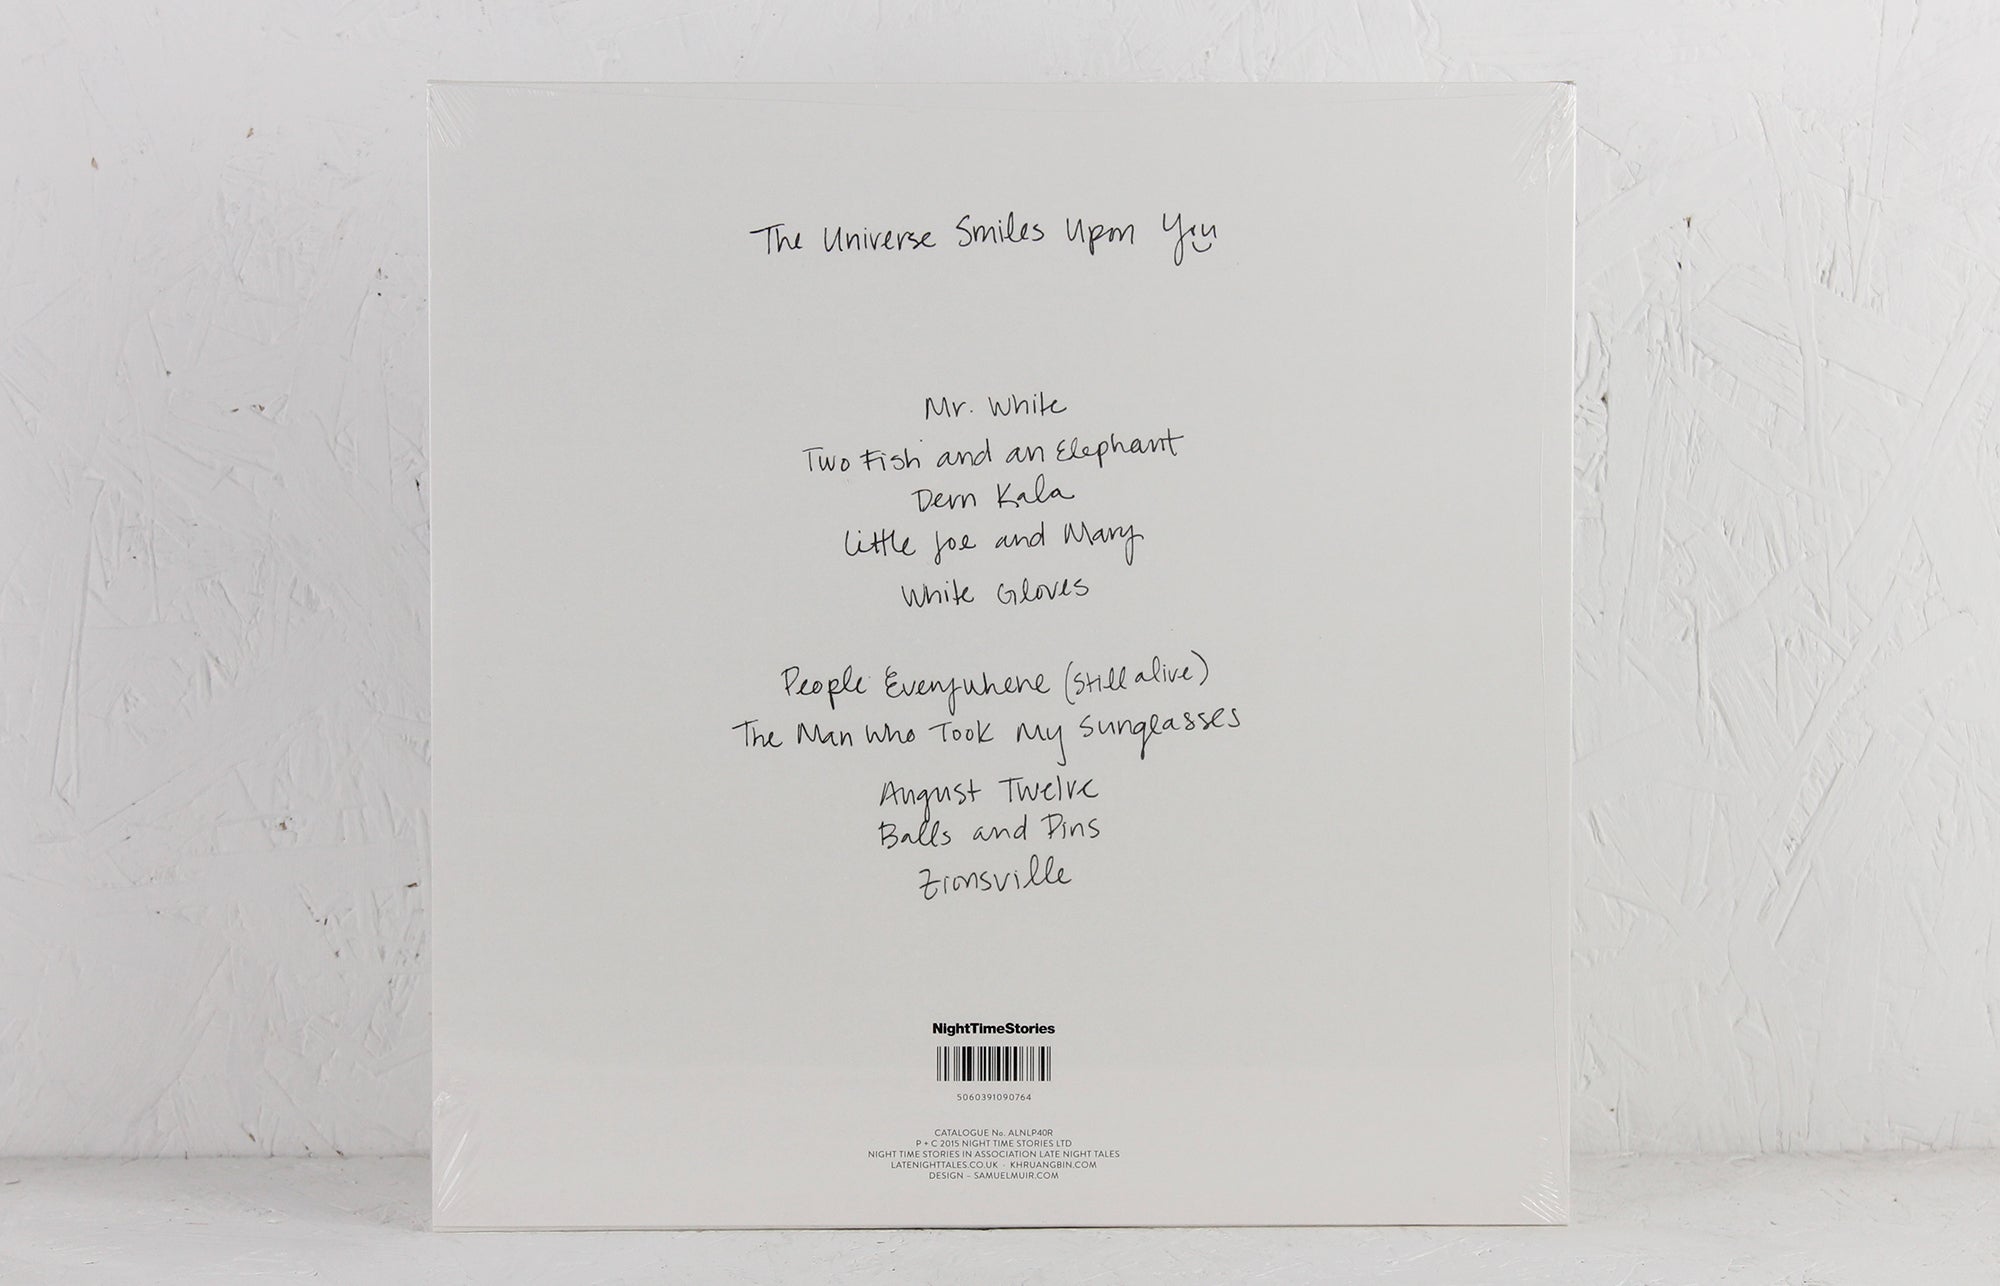 The Universe Smiles Upon You
Mr. White
Two Fish and an Elephant
Dern Kala
Little Joe and Mary
White Gloves
People Everywhere (Still alive)
The Man Who Took My Sunglasses
August Twelve
Balls and Pins
Zionsville
NightTimeStories
5060391090764
CATALOGUE No. ALNLP40R
P + C 2015 NIGHT TIME STORIES LTD
NIGHT TIME STORIES IN ASSOCIATION LATE NIGHT TALES
LATENIGHTTALES.CO.UK · KHRUANGBIN.COM
DESIGN – SAMUELMUIR.COM